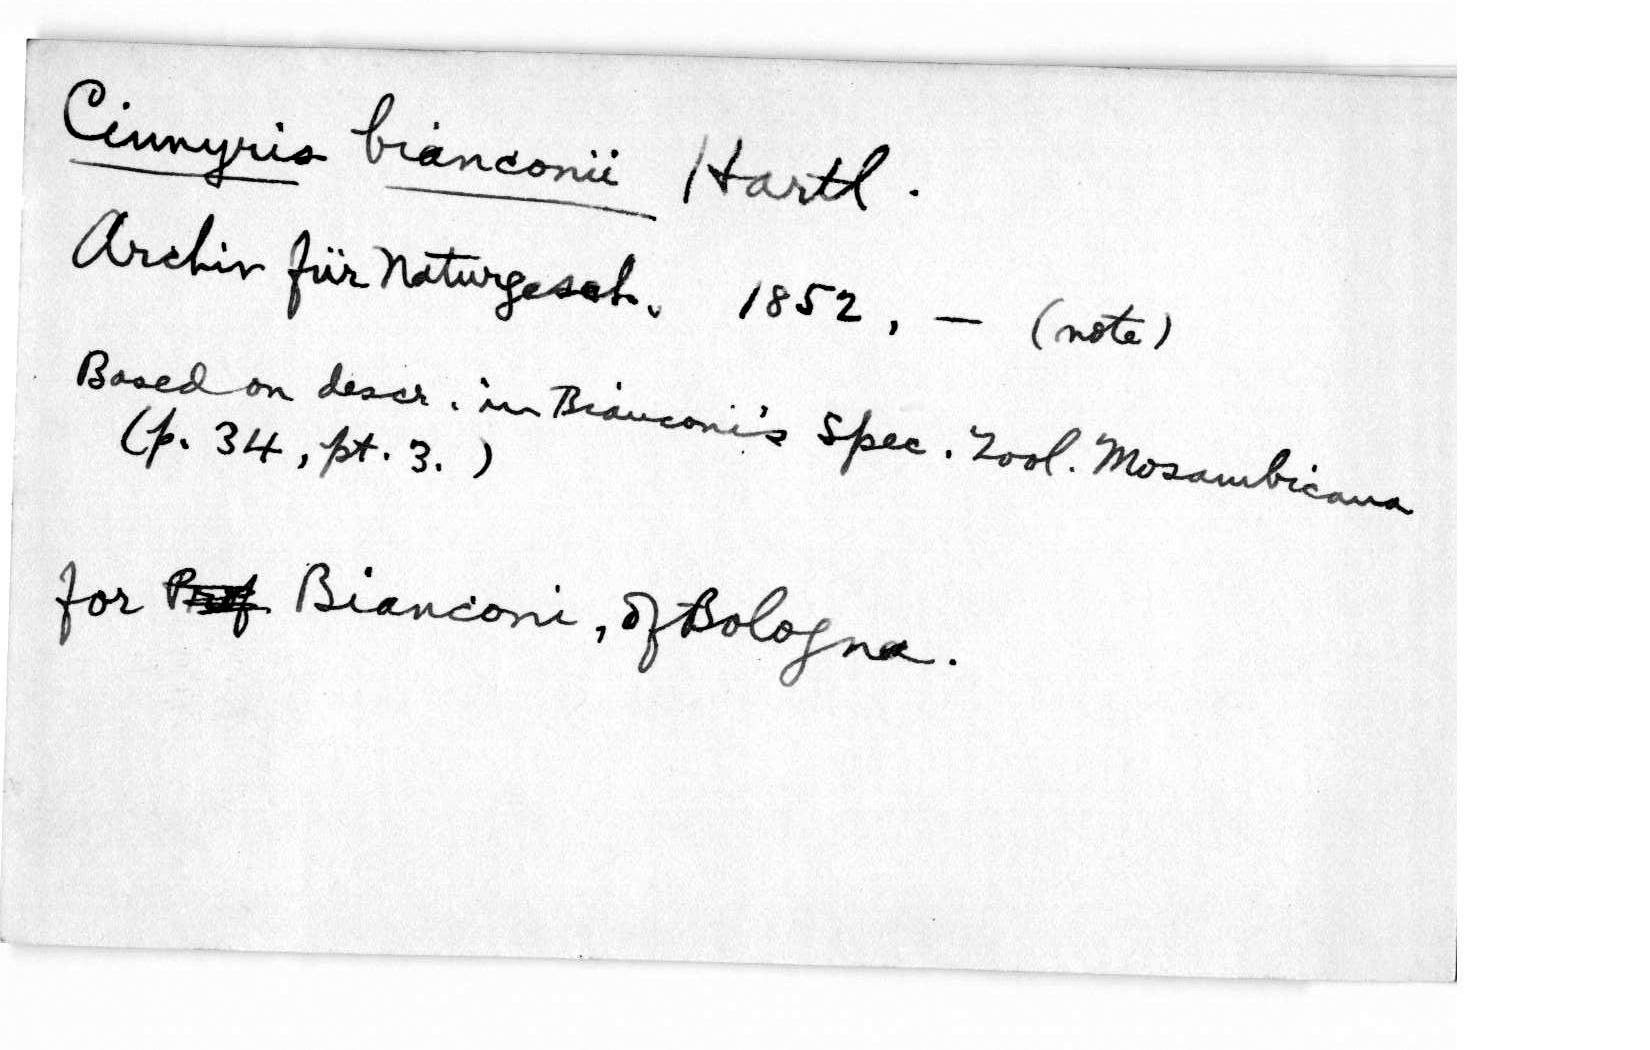 Cinnyris bianconii Hartl.
Archiv für Naturgesch. 1852, — (note)
Based on descr. in Bianconi's Spec. Zool. Mosambicana
(p. 34, pt. 3.)
for Prof Bianconi, of Bologna.